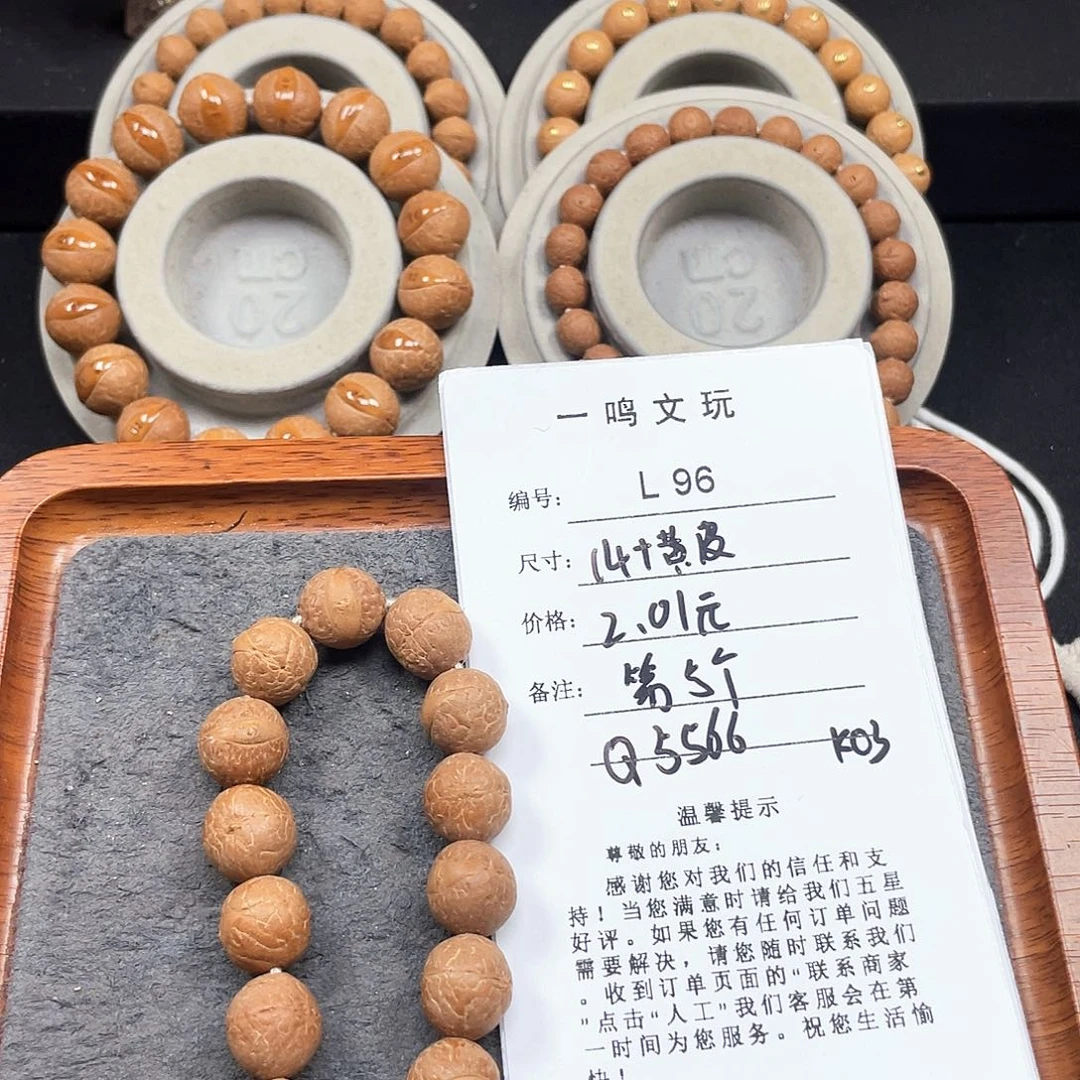 20
CM
20
CM
一鸣文玩
编号: L 96
尺寸: 14+黄皮
价格: 2.01元
备注: 第5个
Q5566 K03
温馨提示
尊敬的朋友:
感谢您对我们的信任和支
持!当您满意时请给我们五星
好评。如果您有任何订单问题
需要解决,请您随时联系我们
。收到订单页面的“联系商家
”点击“人工”我们客服会在第
一时间为您服务。祝您生活愉
快!